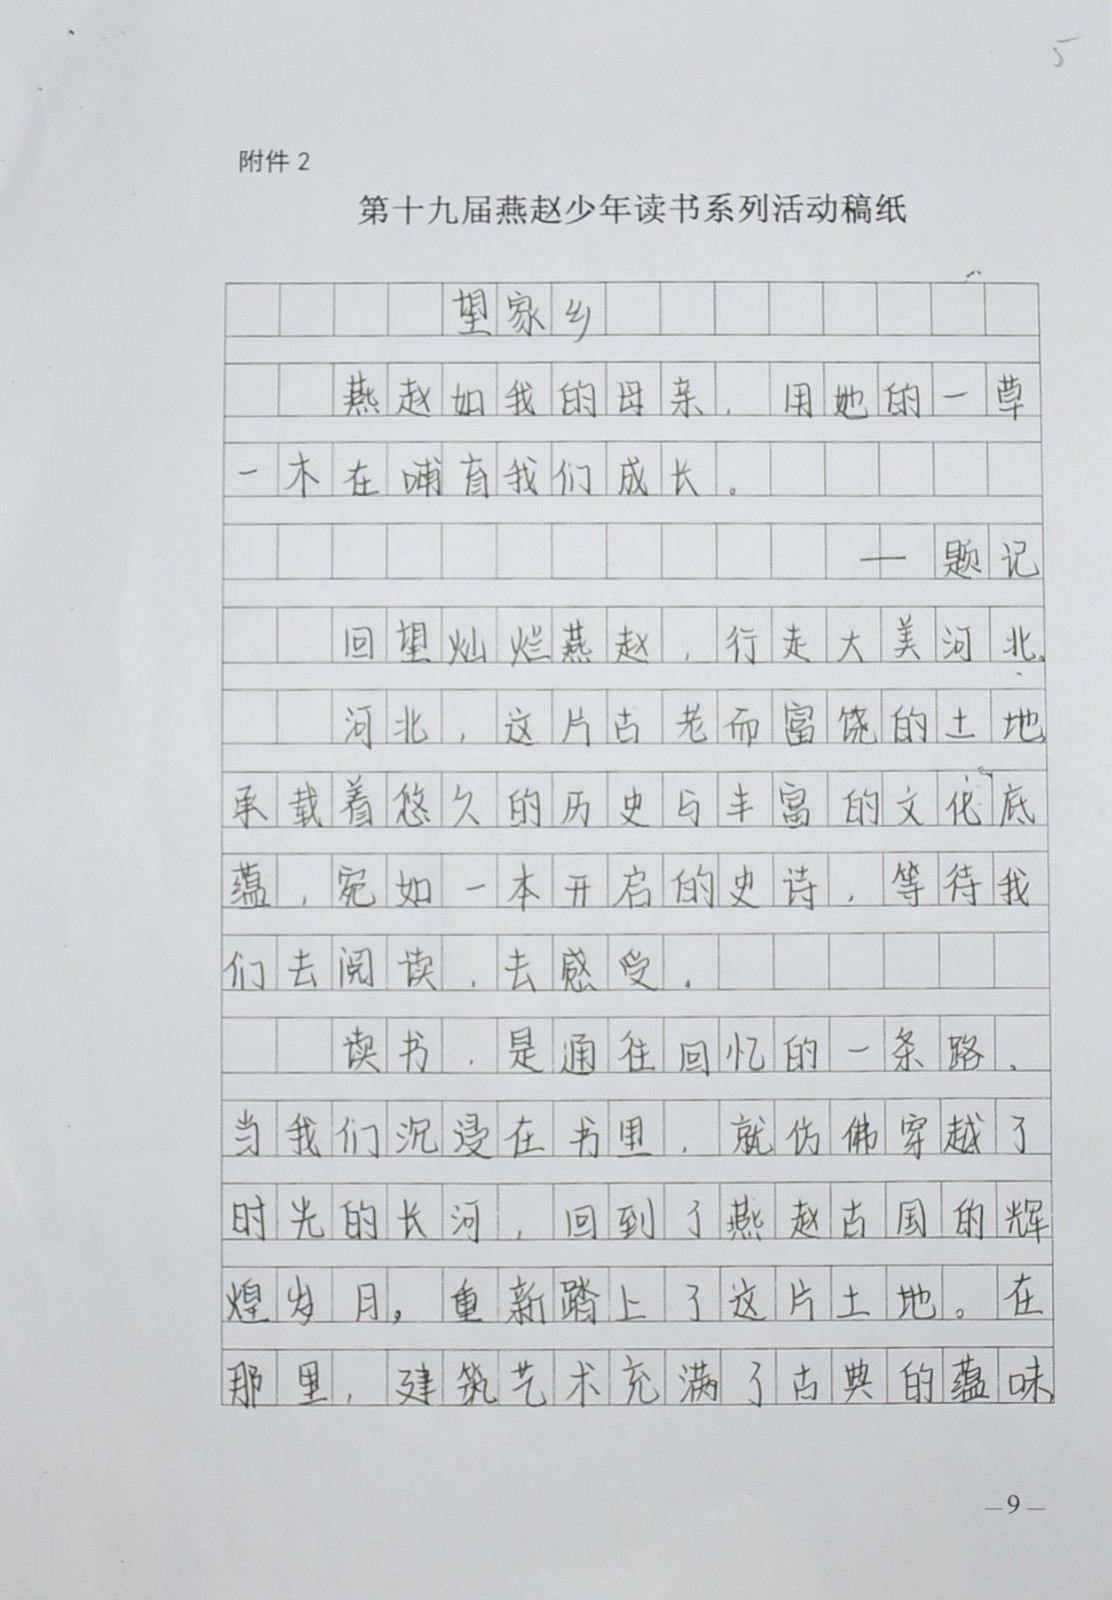 5
附件2
第十九届燕赵少年读书系列活动稿纸
望家乡
燕赵如我的母亲，用她的一草
一木在哺育我们成长。
—题记
回望灿烂燕赵，行走大美河北。
河北，这片古老而富饶的土地，
承载着悠久的历史与丰富的文化底
蕴，宛如一本开启的史诗，等待我
们去阅读，去感受。
读书，是通往回忆的一条路，
当我们沉浸在书里，就仿佛穿越了
时光的长河，回到了燕赵古国的辉
煌岁月，重新踏上了这片土地。在
那里，建筑艺术充满了古典的蕴味，
—9—